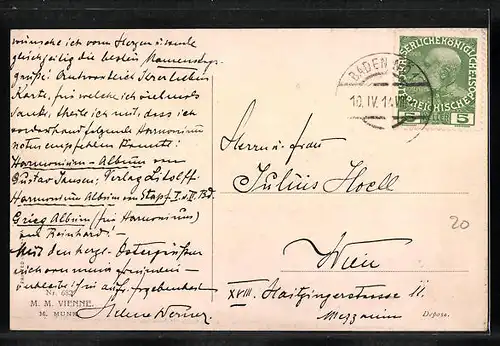 wünsche ich vom Herzen u. sende
gleichzeitig die besten Namenstags-
grüße! Ihrer lieben
Karte, für welche ich vielmals
danke, theile ich mit, dass ich
folgende Harmonium
noten empfehlen
Harmonium-Album von
Gustav Jansen; Verlag Litolff.
Harmonium Album von Stapf I. u. II. Bd.
Grieg Album (für Harmonium)
von Reinhard!
Mit den herzl. Ostergrüßen
auch von
ergebenst
Helene Werner
Nr. 652
M. M. VIENNE.
M. MUNK
BADEN
10. IV. 14
KAISERLICHE KÖNIGLICHE
ÖSTERREICHISCHE
5 HELLER 5
Herrn u. Frau
Julius Hoell
Wien
XVIII. Haitzingerstrasse 11.
Mezzanin
Depose.
20